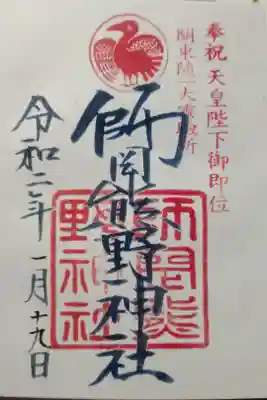 奉祝 天皇陛下御即位
関東随一大霊験所
師岡熊野神社
師岡熊
野神社
令和二年 一月十九日